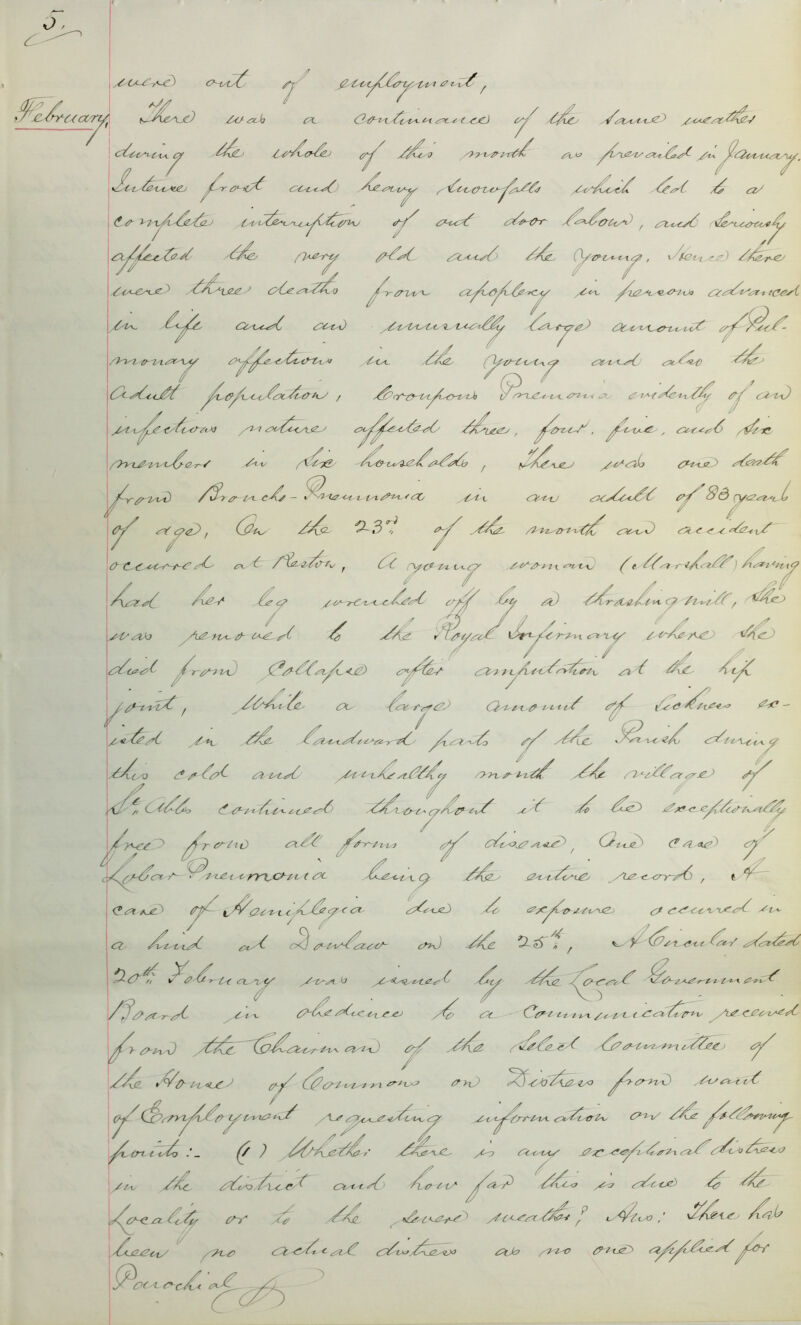 5.
were out of employment,
February, There was a continuance of the same weather
during the whole of this month as prevailed in January.
Intense frost and heavy snowfalls which led to a
complete interruption of out door labour, and seriously
affected the very old and the young. Hence there
were three deaths from apoplexy in persons advanced
in life and an unusually large amount of Pul-
monary affections in the young and also the
Adult population, Croupous Pneumonia evidently of an
infectious nature affected three, four, five, and six
members in six households, There was one death
from Broncho-Pneumonia in an adult of 83 years
of age, On the 23rd. of the month an accident
occurred at Reston, A young woman (Marshall) having
had her leg wrenched off by a thrashing mill, she
was removed to the Royal Infirmary where she
died from Collapse after amputation at the hip
joint, While a large amount of sickness ex-
isted in the landward parts of the Parish during
this cold and unhealthy month the village of
St. Abbs continued throughout it to be exceptionally
free from all forms of disease, One case of
Lobar Pneumonia being the entire record, A
case of Hemiplegia due to exposure occurred in
a hind at Dowlaw on the 25th., A Circular dated
20th. February was issued by the Local Government
Board in obedience to a Communication received
from the Chairman of the Select Committee of
the House of Commons on Distress from want
of Employment requesting information on the following
points :- (1) Whether there is any exceptional distress
in the district and how far this is due to the
locality or to the severe weather? Ans: There has
been no actual distress as no one applied for
Parochial